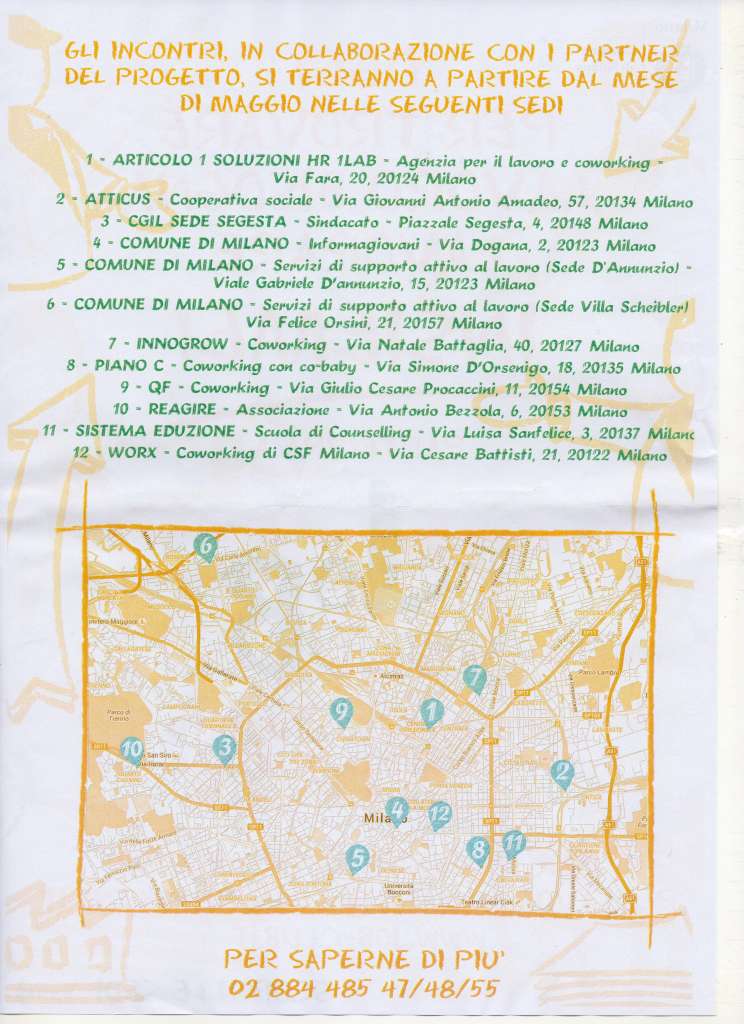 GLI INCONTRI, IN COLLABORAZIONE CON I PARTNER
DEL PROGETTO, SI TERRANNO A PARTIRE DAL MESE
DI MAGGIO NELLE SEGUENTI SEDI
1 - ARTICOLO 1 SOLUZIONI HR 1LAB - Agenzia per il lavoro e coworking -
Via Fara, 20, 20124 Milano
2 - ATTICUS - Cooperativa sociale - Via Giovanni Antonio Amadeo, 57, 20134 Milano
3 - CGIL SEDE SEGESTA - Sindacato - Piazzale Segesta, 4, 20148 Milano
4 - COMUNE DI MILANO - Informagiovani - Via Dogana, 2, 20123 Milano
5 - COMUNE DI MILANO - Servizi di supporto attivo al lavoro (Sede D'Annunzio) -
Viale Gabriele D'annunzio, 15, 20123 Milano
6 - COMUNE DI MILANO - Servizi di supporto attivo al lavoro (Sede Villa Scheibler)
Via Felice Orsini, 21, 20157 Milano
7 - INNOGROW - Coworking - Via Natale Battaglia, 40, 20127 Milano
8 - PIANO C - Coworking con co-baby - Via Simone D'Orsenigo, 18, 20135 Milano
9 - QF - Coworking - Via Giulio Cesare Procaccini, 11, 20154 Milano
10 - REAGIRE - Associazione - Via Antonio Bezzola, 6, 20153 Milano
11 - SISTEMA EDUZIONE - Scuola di Counselling - Via Luisa Sanfelice, 3, 20137 Milano
12 - WORX - Coworking di CSF Milano - Via Cesare Battisti, 21, 20122 Milano
6
7
9
1
10
3
2
4
12
Milano
8
11
5
Parco Lambro
Alcatraz
Università
Bocconi
Teatro Linear Ciak
PER SAPERNE DI PIU'
02 884 485 47/48/55